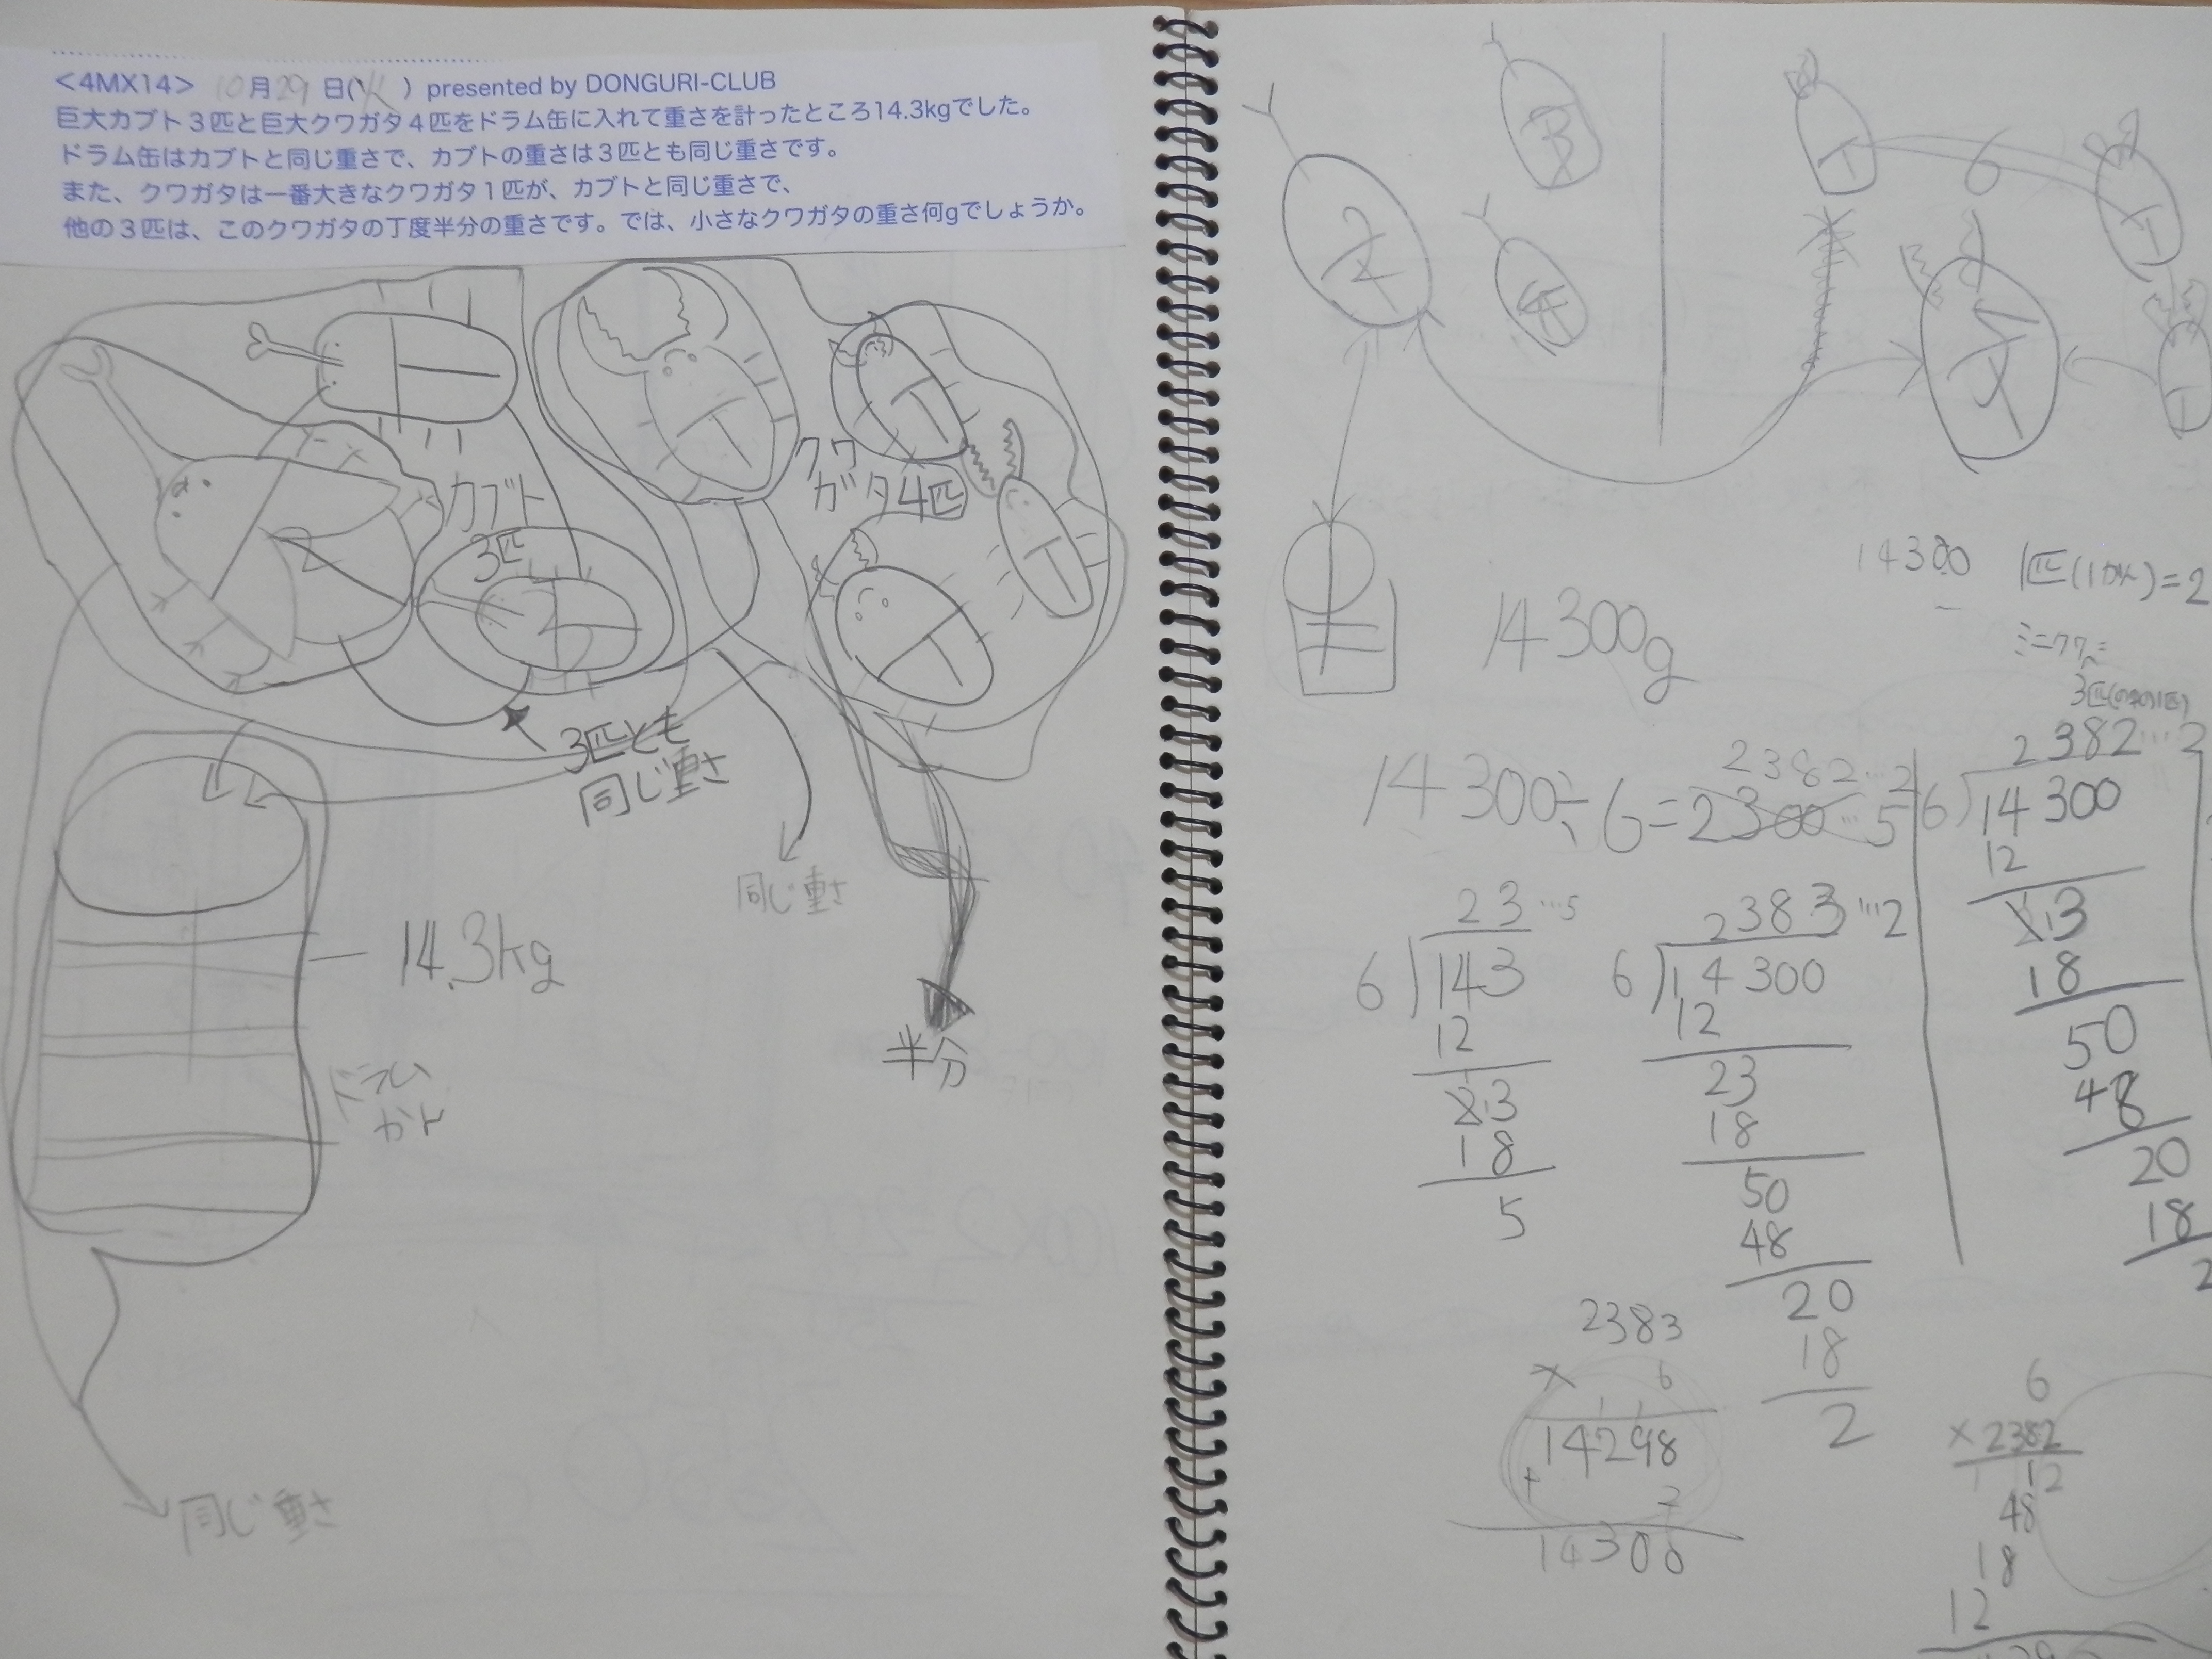 <4MX14> 10月29日(火) presented by DONGURI-CLUB
巨大カブト３匹と巨大クワガタ４匹をドラム缶に入れて重さを計ったところ14.3kgでした。
ドラム缶はカブトと同じ重さで、カブトの重さは３匹とも同じ重さです。
また、クワガタは一番大きなクワガタ１匹が、カブトと同じ重さで、
他の３匹は、このクワガタの丁度半分の重さです。では、小さなクワガタの重さ何gでしょうか。
カブト
3匹
クワ
ガタ4匹
3匹とも
同じ重さ
同じ重さ
半分
14.3kg
ドラム
カン
同じ重さ
2
6
14300g
14300
3匹
14300÷6=2300…5
2382…2
23…5
6)143
12
23
18
5
2383…2
6)14300
12
23
18
50
48
20
18
2
2383
× 6
14298
+ 2
14300
2382…2
6)14300
12
23
18
50
48
20
18
2
6
×2382
12
48
18
12